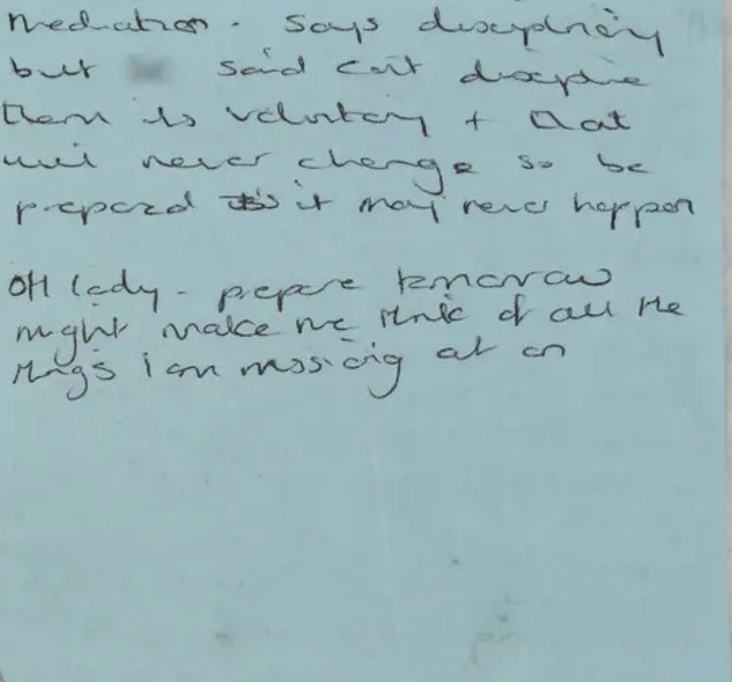 Mediation. Says disciplinary
but said can't discipline
them its voluntary + that
will never change so be
prepared it may never happen
OH lady - prepare tomorrow
might make me think of all the
things I am missing at on